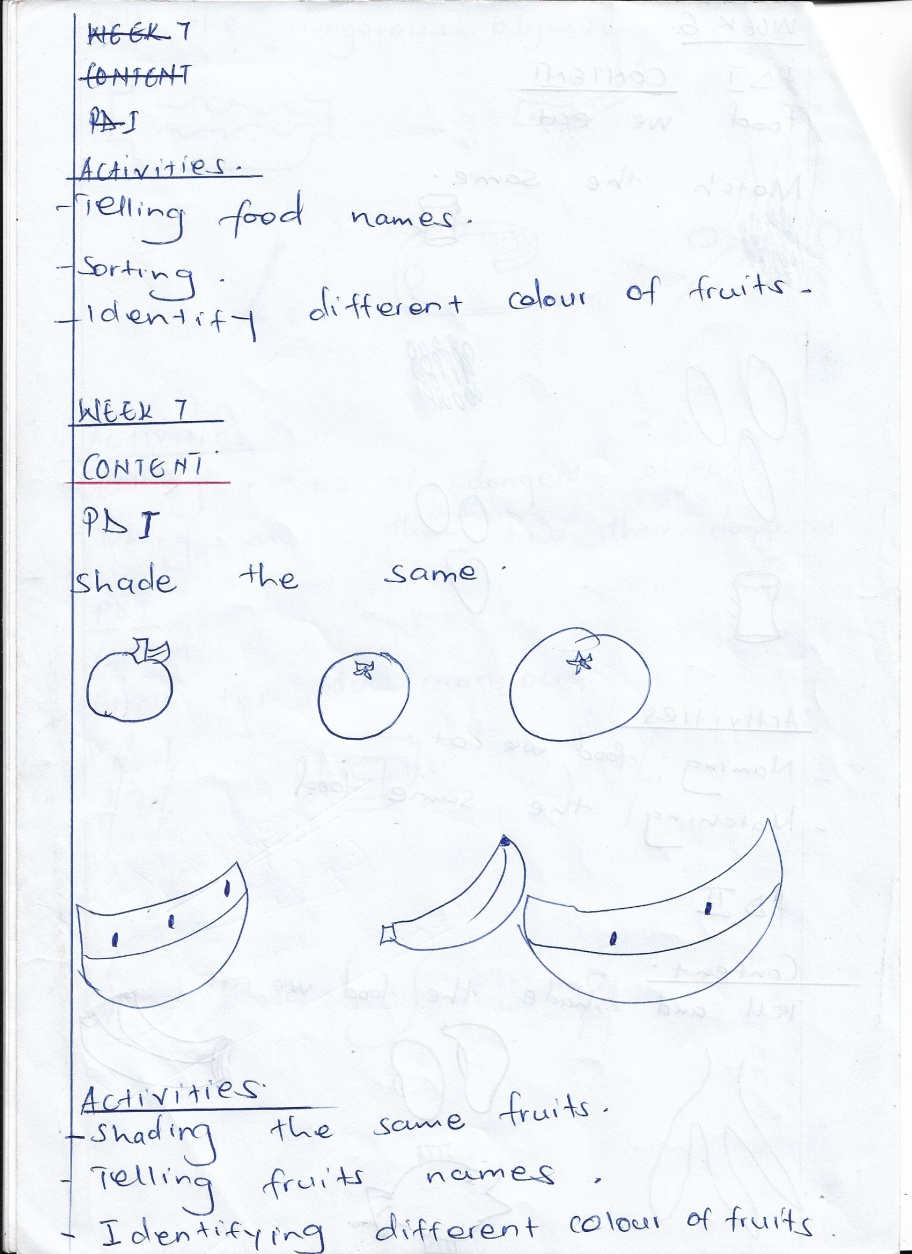 WEEK 7
CONTENT
PD I
Activities.
- Telling food names.
- Sorting.
- Identify different colour of fruits.
WEEK 7
CONTENT
PD I
Shade the same.
Activities.
- Shading the same fruits.
- Telling fruits names.
- Identifying different colour of fruits.